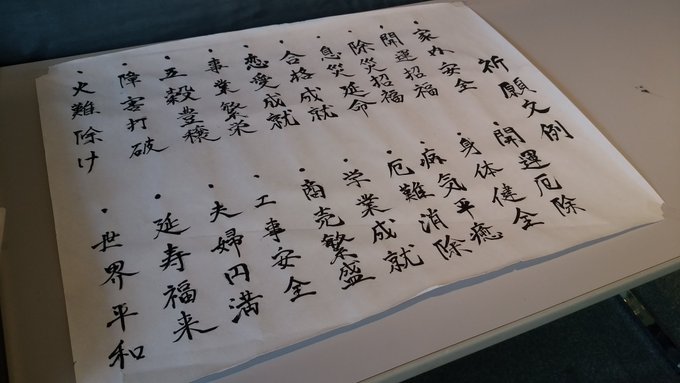 祈願文例
・家内安全
・開運招福
・除災招福
・息災延命
・合格成就
・恋愛成就
・事業繁栄
・五穀豊穣
・障害打破
・火難除け
・開運厄除
・身体健全
・病気平癒
・厄難消除
・学業成就
・商売繁盛
・工事安全
・夫婦円満
・延寿福来
・世界平和